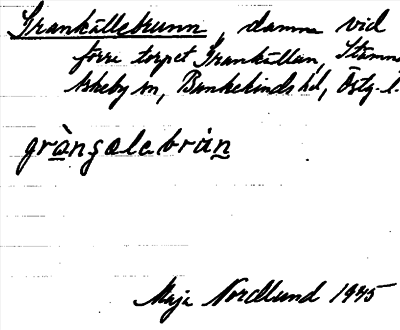 Grankällebrunn, damm vid
förre torpet Grankällan, Stämm
Askeby sn, Bankekinds hd, Östg. l.
grànçælebrùn
Maja Nordlund 1945